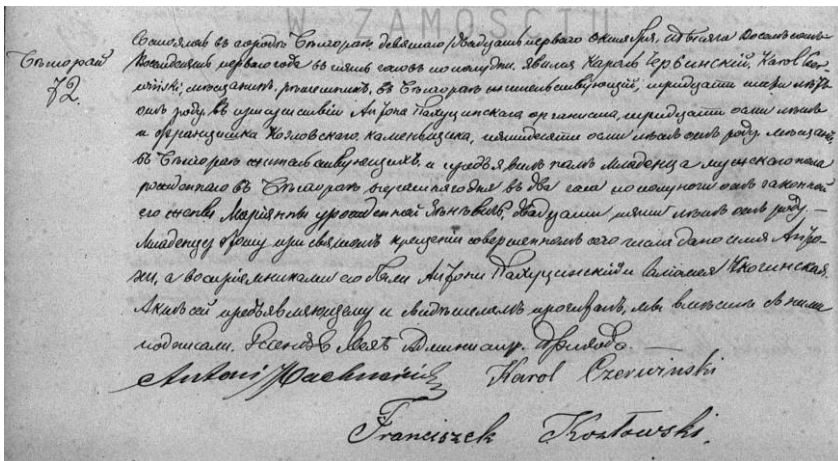 W ZAMOŚCIU
Бѣлгорай
72.
Состоялось въ городѣ Бѣлгораѣ, девятаго /двадцать перваго/ октября, тысяча восемьсотъ
восемьдесятъ перваго года въ пять часовъ по полудни. Явился Кароль Червинскій, Karol Czer-
wiński, мѣщанинъ, въ Бѣлгораѣ жительствующій, тридцати лѣтъ
отъ роду, въ присутствіи Антона Пахуцинскаго органиста, тридцати осьми лѣтъ
и Францишка Козловскаго каменьщика, пятидесяти осьми лѣтъ отъ роду, мѣщанъ,
въ Бѣлгораѣ жительствующихъ, и предъявилъ намъ младенца мужескаго пола
рожденнаго въ Бѣлгораѣ дня въ два часа по полуночи отъ законной
его жены Маріянны урожденной двадцати пяти лѣтъ отъ роду. —
Младенцу этому при святомъ крещеніи совершенномъ сего числа дано имя Анто-
ній, а воспріемниками его были Антоній Пахуцинскій и Саломея
Актъ сей предъявляющему и свидѣтелямъ прочитанъ, мы вмѣстѣ съ ними
подписали. Ксендзъ Админстр. прихода. —
Antoni Karol Czerwinski
Franciszek Kozłowski.